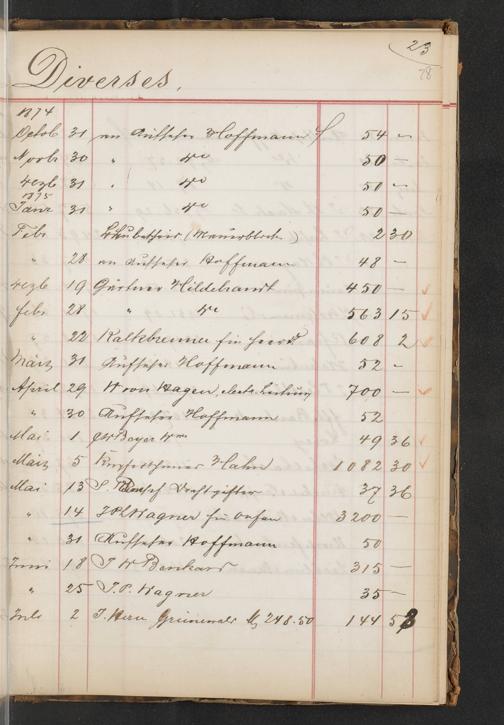 23
28
Diverses.
1874
Octob 31 an Aufseher Hoffmann 54 —
Novb 30 " do 50 —
Dezb 31 " do 50 —
1875
Janr 31 " do 50 —
Febr 2 30
" 28 an Aufseher Hoffmann 48 —
Dezb 19 Gärtner Hildebrandt 450 —
Febr 28 " do 563 15
" 22 Kaltebrenner für 608 2
März 31 Aufseher Hoffmann 52 —
April 29 W von Hagen, 700 —
" 30 Aufseher Hoffmann 52
Mai 1 Bayer Wwe 49 36
März 5 Hahn 1082 30
Mai 13 S. 37 36
" 14 J P Wagner für Oefen 3200 —
" 31 Aufseher Hoffmann 50
Juni 18 J W Bernhard 315 —
" 25 J. P. Wagner 35 —
Juli 2 J. Herm Grünewald M 248.50 144 58